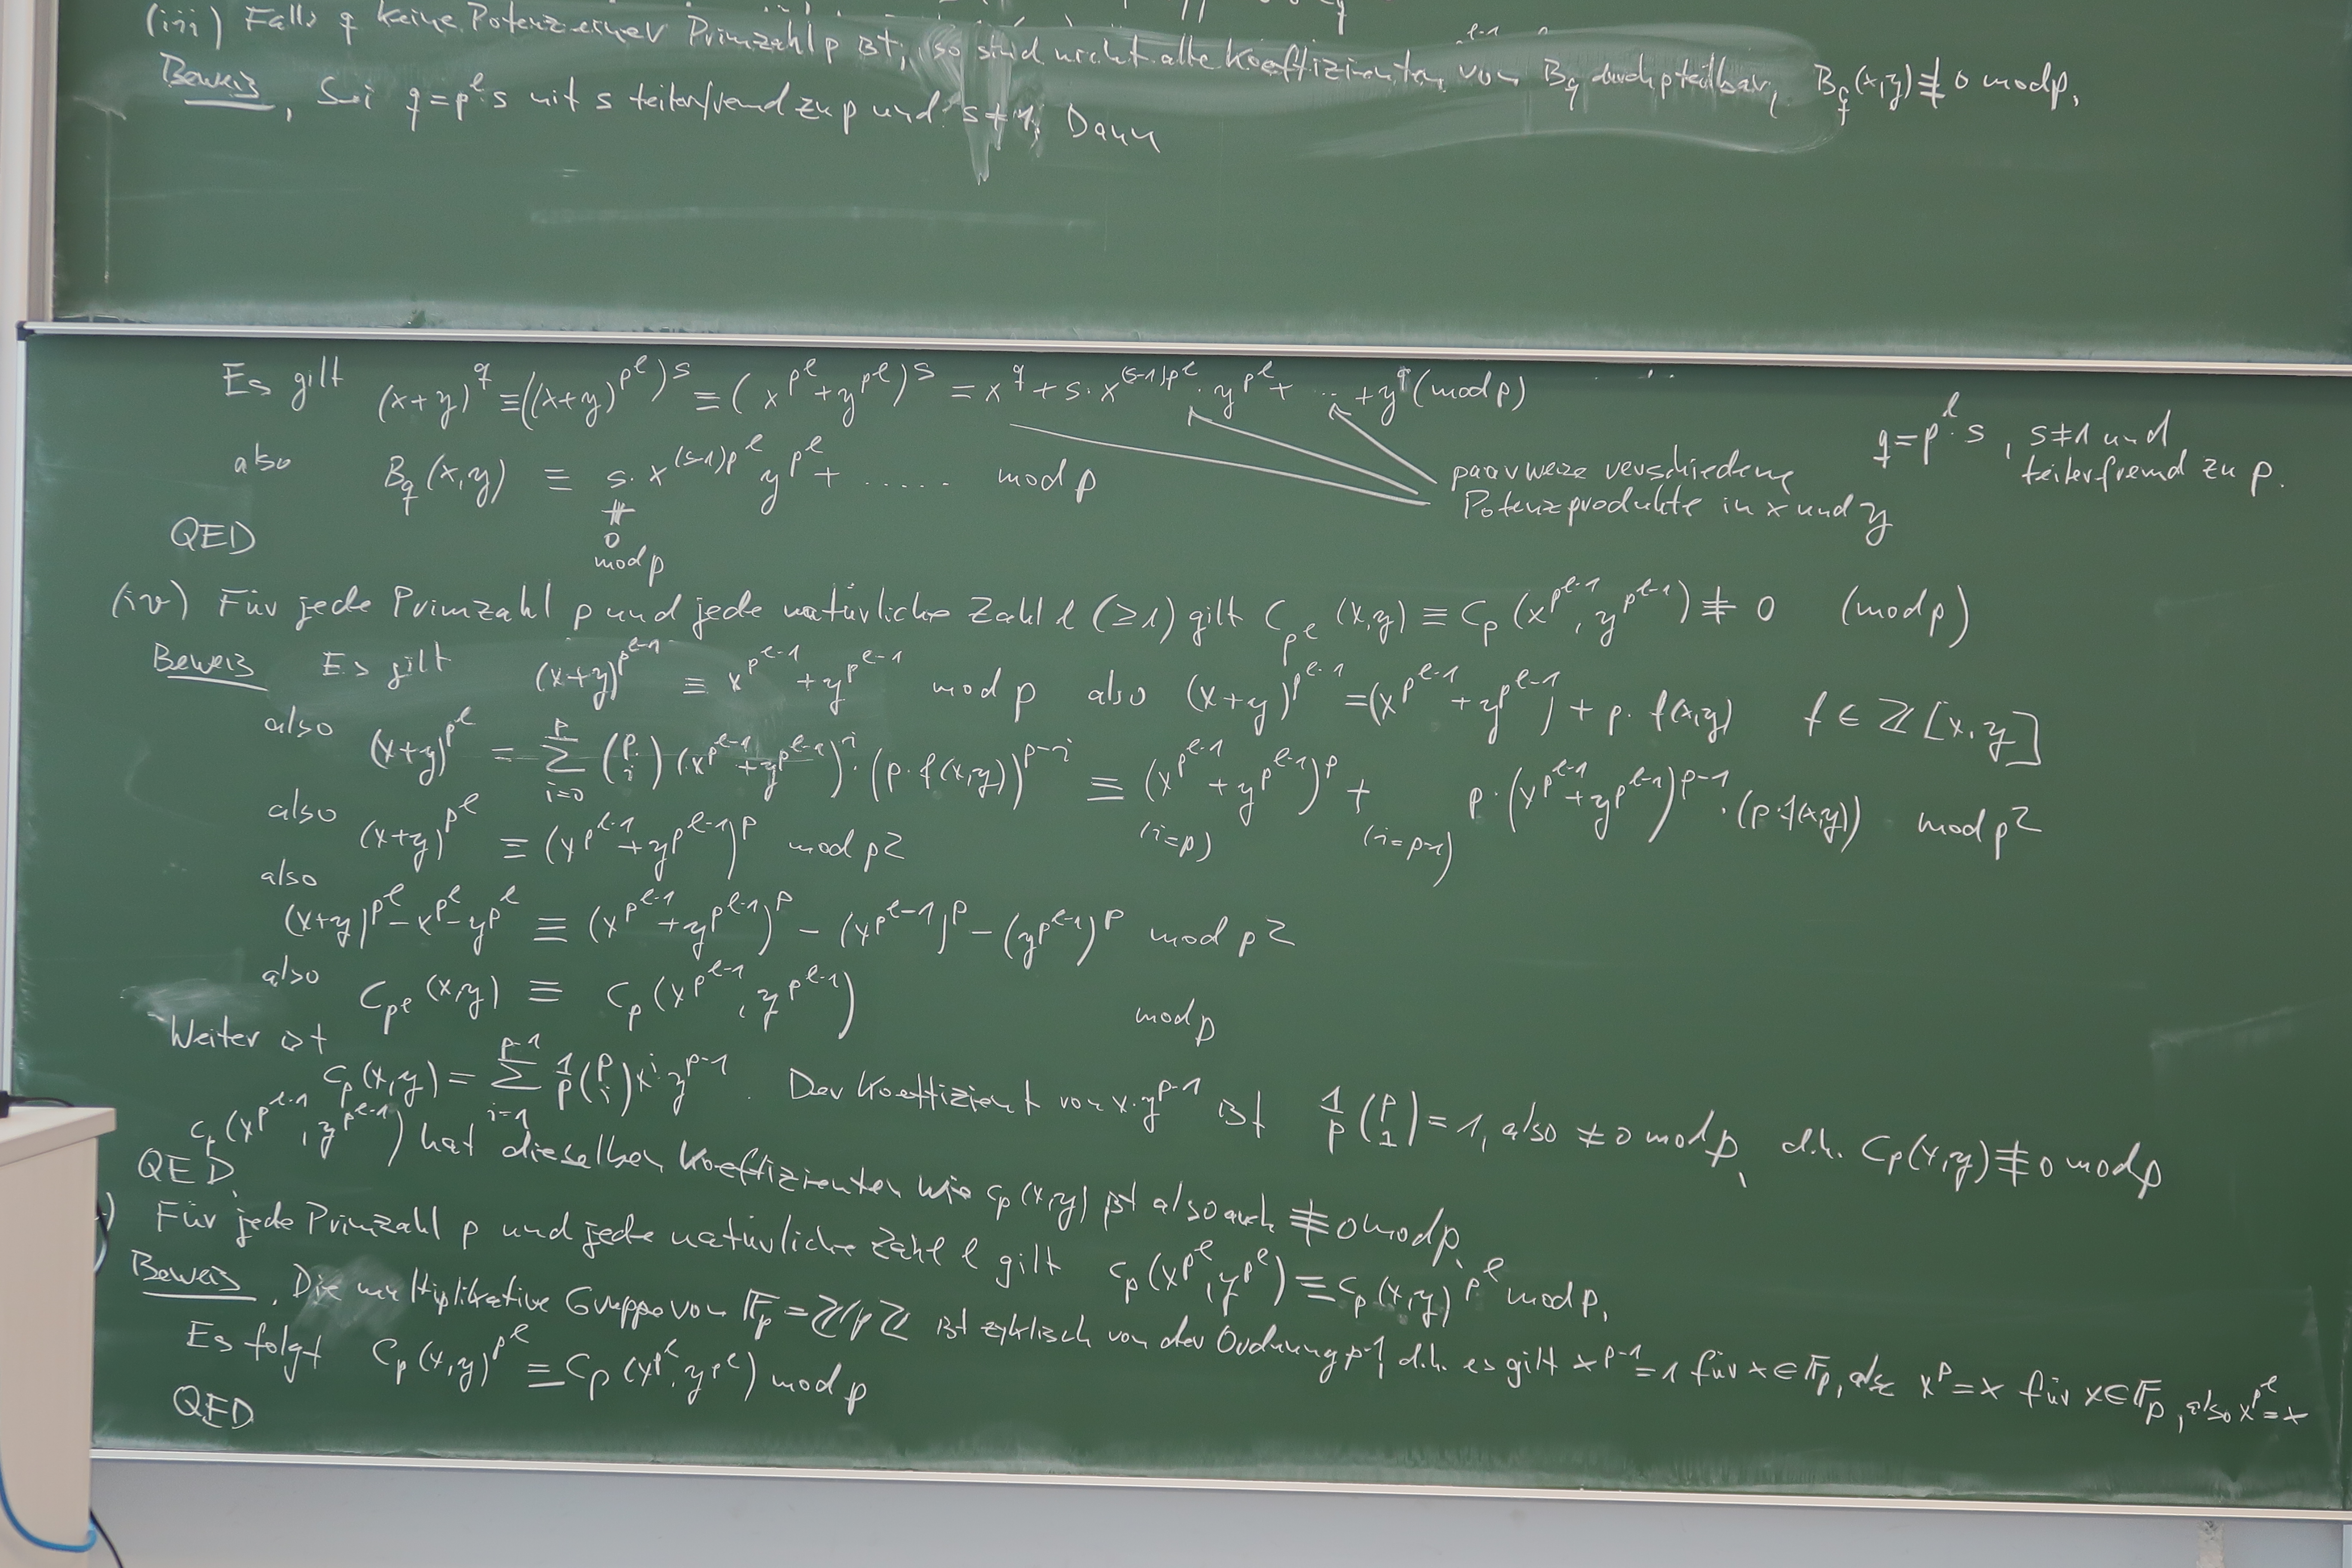 (iii) Falls q keine Potenz einer Primzahl p ist, so sind nicht alle Koeffizienten von B_q durch p teilbar, B_q(x,y) ≢ 0 mod p.
Beweis. Sei q = p^l·s mit s teilerfremd zu p und s ≠ 1, Dann
Es gilt (x+y)^q ≡ ((x+y)^{p^l})^s ≡ (x^{p^l} + y^{p^l})^s = x^q + s·x^{(s-1)p^l}·y^{p^l} + ... + y^q (mod p)
q = p^l·s, s ≠ 1 und
teilerfremd zu p.
also B_q(x,y) ≡ s·x^{(s-1)p^l} y^{p^l} + ...... mod p
paarweise verschiedene
Potenzprodukte in x und y
≢
0
mod p
QED
(iv) Für jede Primzahl p und jede natürliche Zahl l (≥1) gilt C_{p^l}(x,y) ≡ C_p(x^{p^{l-1}}, y^{p^{l-1}}) ≢ 0 (mod p)
Beweis Es gilt (x+y)^{p^{l-1}} ≡ x^{p^{l-1}} + y^{p^{l-1}} mod p also (x+y)^{p^{l-1}} = (x^{p^{l-1}} + y^{p^{l-1}}) + p·f(x,y) f ∈ ℤ[x,y]
also (x+y)^{p^l} = Σ_{i=0}^{p} (p über i) (x^{p^{l-1}} + y^{p^{l-1}})^i·(p·f(x,y))^{p-i} ≡ (x^{p^{l-1}} + y^{p^{l-1}})^p + p·(x^{p^{l-1}} + y^{p^{l-1}})^{p-1}·(p·f(x,y)) mod p²
(i=p) (i=p-1)
also (x+y)^{p^l} ≡ (x^{p^{l-1}} + y^{p^{l-1}})^p mod p²
also
(x+y)^{p^l} - x^{p^l} - y^{p^l} ≡ (x^{p^{l-1}} + y^{p^{l-1}})^p - (x^{p^{l-1}})^p - (y^{p^{l-1}})^p mod p²
also C_{p^l}(x,y) ≡ C_p(x^{p^{l-1}}, y^{p^{l-1}}) mod p
Weiter ist
C_p(x,y) = Σ_{i=1}^{p-1} 1/p (p über i) x^i y^{p-1}. Der Koeffizient von x·y^{p-1} ist 1/p (p über 1) = 1, also ≠ 0 mod p, d.h. C_p(x,y) ≢ 0 mod p
C_p(x^{p^{l-1}}, y^{p^{l-1}}) hat dieselben Koeffizienten wie C_p(x,y) ist also auch ≢ 0 mod p.
QED.
) Für jede Primzahl p und jede natürliche Zahl l gilt C_p(x^{p^l}, y^{p^l}) ≡ C_p(x,y)^{p^l} mod p.
Beweis. Die multiplikative Gruppe von 𝔽_p = ℤ/pℤ ist zyklisch von der Ordnung p-1, d.h. es gilt x^{p-1} = 1 für x ∈ 𝔽_p, also x^p = x für x ∈ 𝔽_p, also x^{p^l} = x
Es folgt C_p(x,y)^{p^l} ≡ C_p(x^{p^l}, y^{p^l}) mod p
QED